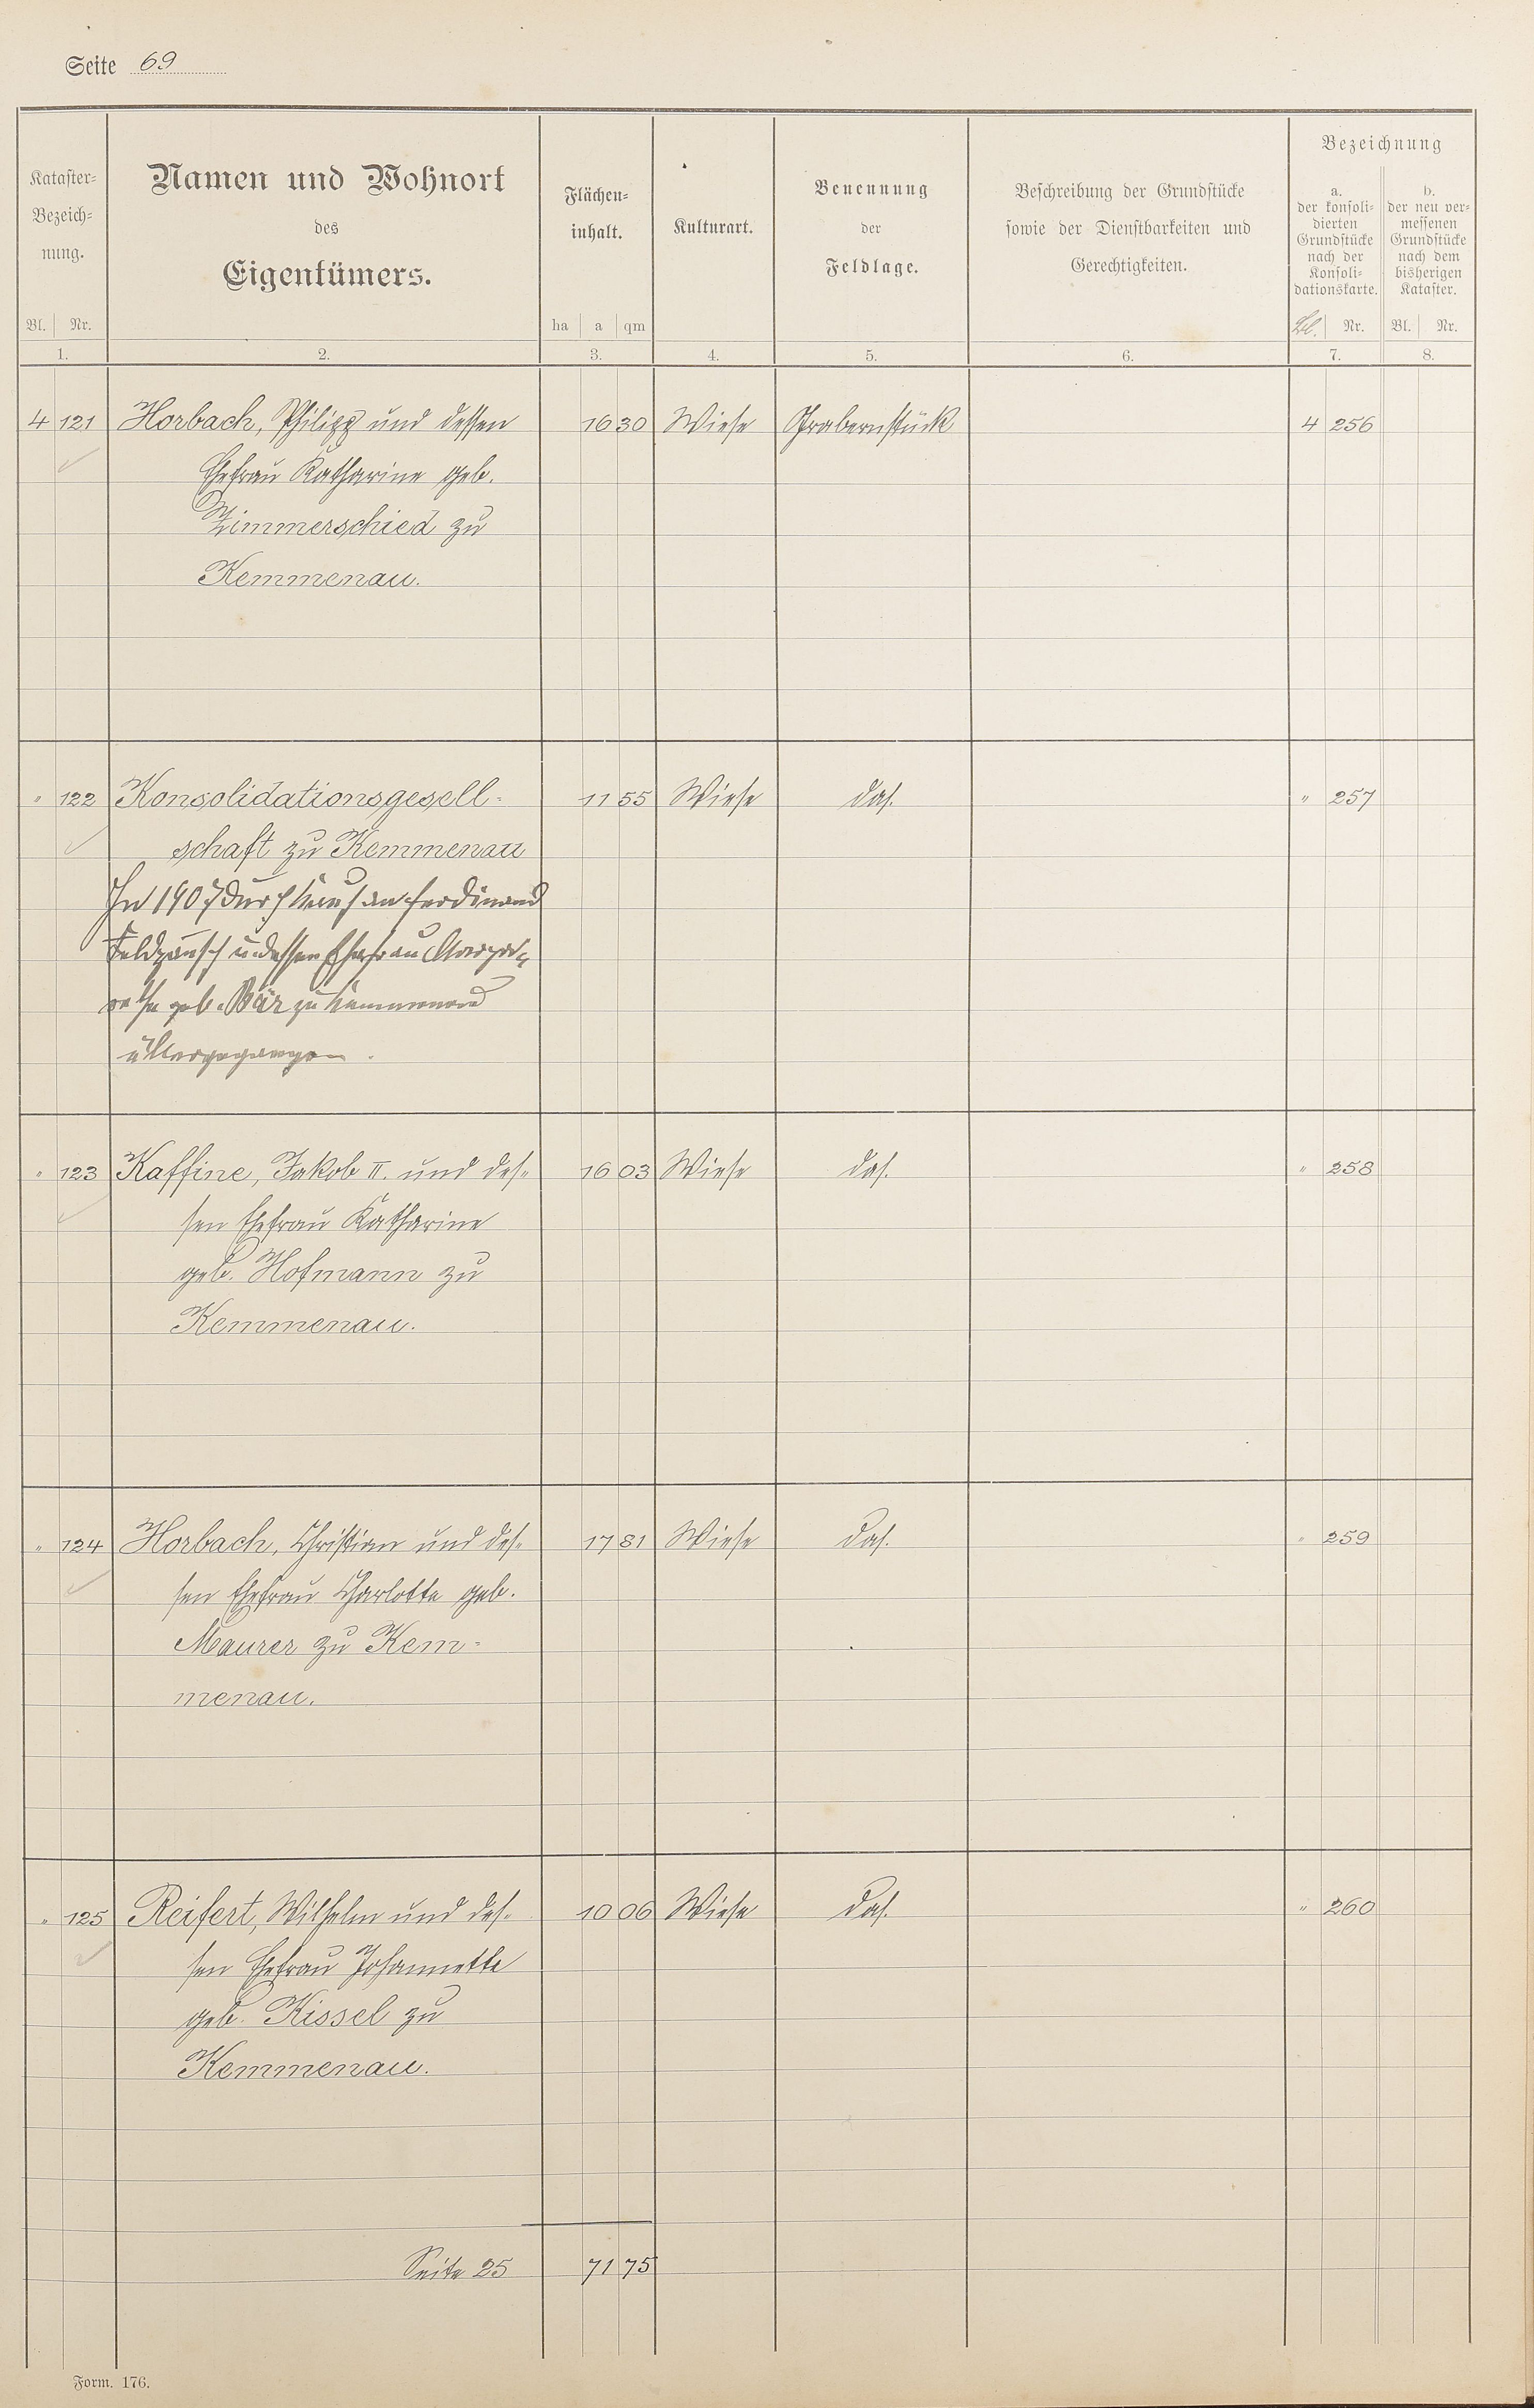 Seite 69
Kataster-Bezeichnung. Bl. Nr. 1.
Namen und Wohnort des Eigentümers. 2.
Flächeninhalt. ha a qm 3.
Kulturart. 4.
Benennung der Feldlage. 5.
Beschreibung der Grundstücke sowie der Dienstbarkeiten und Gerechtigkeiten. 6.
Bezeichnung
a. der konsolidierten Grundstücke nach der Konsolidationskarte. Bl. Nr. 7.
b. der neu vermessenen Grundstücke nach dem bisherigen Kataster. Bl. Nr. 8.
4 121 Horbach, Philipp und dessen 16 30 Wiese Grabernstück 4 256
Ehefrau Katharine geb.
Zimmerschied zu
Kemmenau.
" 122 Konsolidationsgesell- 11 55 Wiese das. " 257
schaft zu Kemmenau
In 1907 durch Kauf an Ferdinand
u. dessen Ehefrau Marga-
rethe geb. Bär zu Kemmenau
übergegangen.
" 123 Kaffine, Jakob II. und des- 16 03 Wiese das. " 258
sen Ehefrau Katharine
geb. Hofmann zu
Kemmenau.
" 124 Horbach, Christian und des- 17 81 Wiese das. " 259
sen Ehefrau Charlotte geb.
Maurer zu Kem-
menau.
" 125 Reifert, Wilhelm und des- 10 06 Wiese das. " 260
sen Ehefrau Johannette
geb. Kissel zu
Kemmenau.
Seite 25 71 75
Form. 176.